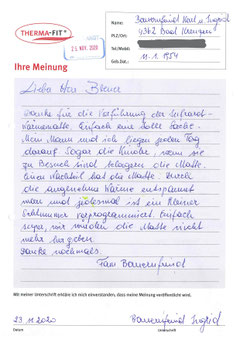 THERMA-FIT®
25. NOV. 2020
Name: Bauernfeind Karl u. Ingrid
PLZ/Ort: 4362 Bad Kreuzen
Tel./Mobil:
Geb.Dat.: 11.1.1954
Ihre Meinung
Liebe Herr
Danke für die Vorführung der Infrarot-
Wärmematte. Einfach eine tolle Sache.
Mein Mann und ich liegen jeden Tag
darauf. Sogar die Kinder, wenn sie
zu Besuch sind belagern die Matte.
Einen Nachteil hat die Matte. Durch
die angenehme Wärme entspannt
man und jedesmal ist ein kleiner
Schlummer vorprogrammiert. Einfach
super wir würden die Matte nicht
mehr hergeben.
Danke nochmals
Fam Bauernfeind
Mit meiner Unterschrift erkläre ich mich einverstanden, dass meine Meinung veröffentlicht wird.
23.11.2020
Bauernfeind Ingrid
Datum
Unterschrift